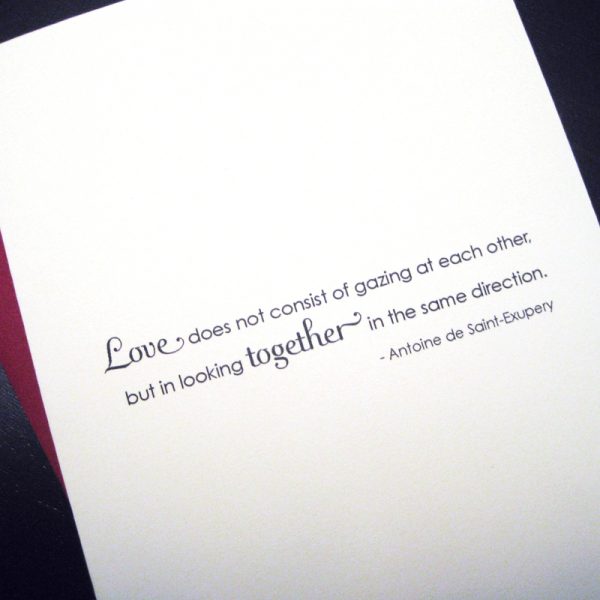 Love does not consist of gazing at each other,
but in looking together in the same direction.
- Antoine de Saint-Exupery